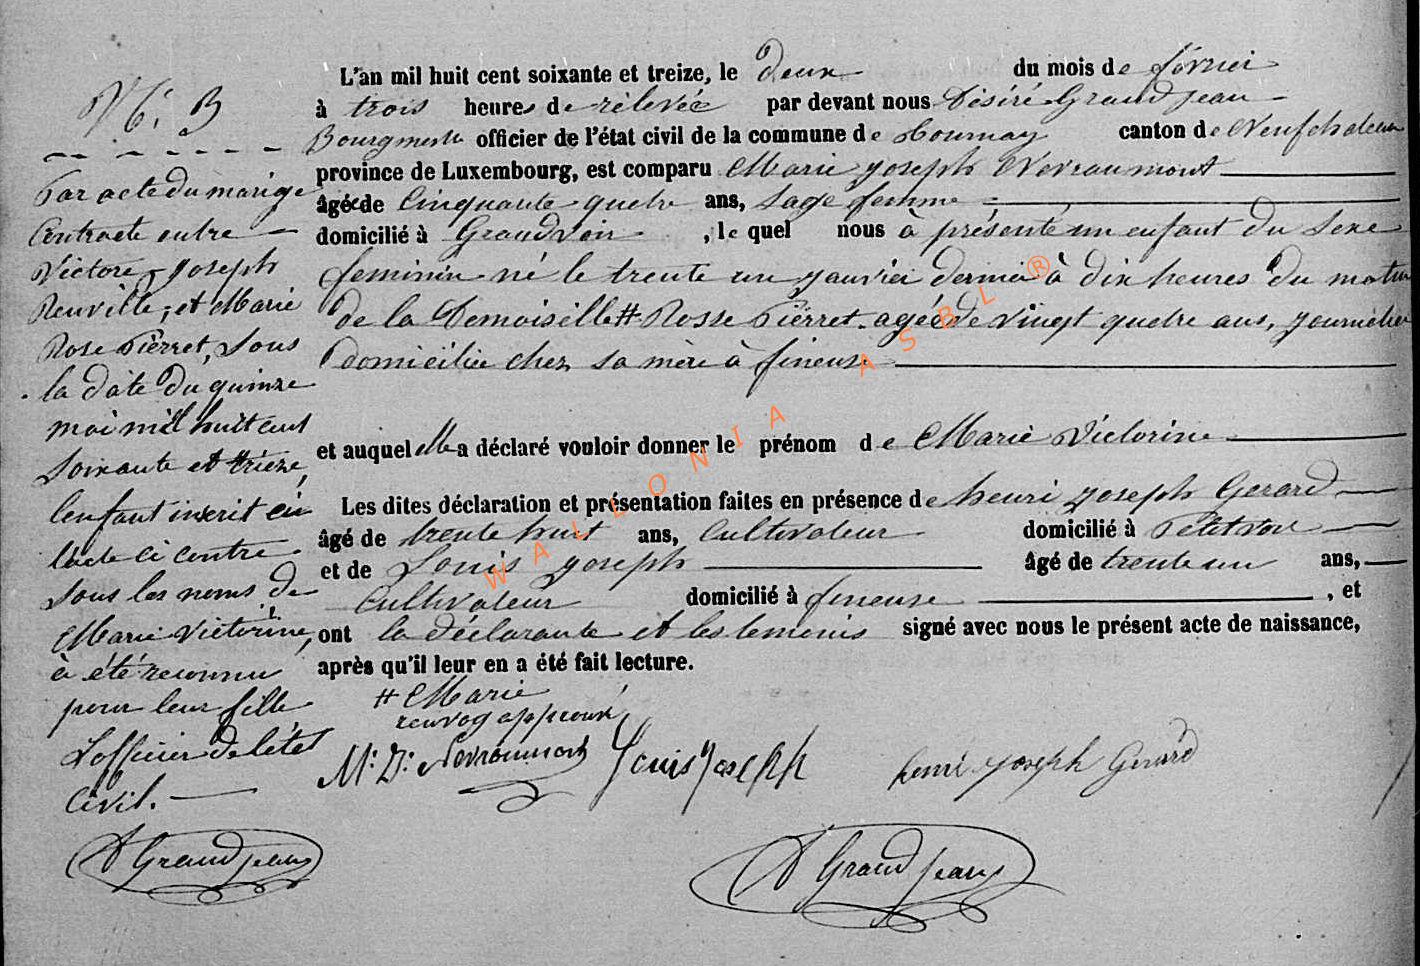 N° 3
Par acte du mariage
Contracté entre
Victore Joseph
Neuville, et Marie
Rose Piërret, sous
la date du quinze
mai mil huit cent
soixante et trieze,
lenfant inscrit en
l'acte ci contre
sous les noms de
Marie Victorine,
à été reconnu
pour leur fille
L'officier de l'état
Civil.
D Grandjean
L'an mil huit cent soixante et treize, le deux du mois de février
à trois heures de rélevée par devant nous Désiré Grandjean
Bourgmestre officier de l'état civil de la commune de Tournay canton de Neufchateau
province de Luxembourg, est comparu Marie Joseph Nevraumont
âgée de Cinquante quatre ans, sage femme
domicilié à Grandvoir, le quel nous à présenté un enfant du sexe
feminin né le trente un janvier dernier à dix heures du matin
de la Demoiselle # Rosse Piërret agéé de vingt quatre ans, journalier
domiciliée chez sa mère à fineuse
et auquel elle a déclaré vouloir donner le prénom de Marie Victorine
Les dites déclaration et présentation faites en présence de henri Joseph Gerard
âgé de trente huit ans, Cultivateur domicilié à Petitvoir
et de Louis Joseph âgé de trente un ans,
Cultivateur domicilié à fineuse, et
ont la déclarante et les temoins signé avec nous le présent acte de naissance,
après qu'il leur en a été fait lecture.
# Marie
renvoy approuvé
M: J: Nevraumont Louis Joseph henri Joseph Gerard
D Grandjean
WALLONIA ASBL ®